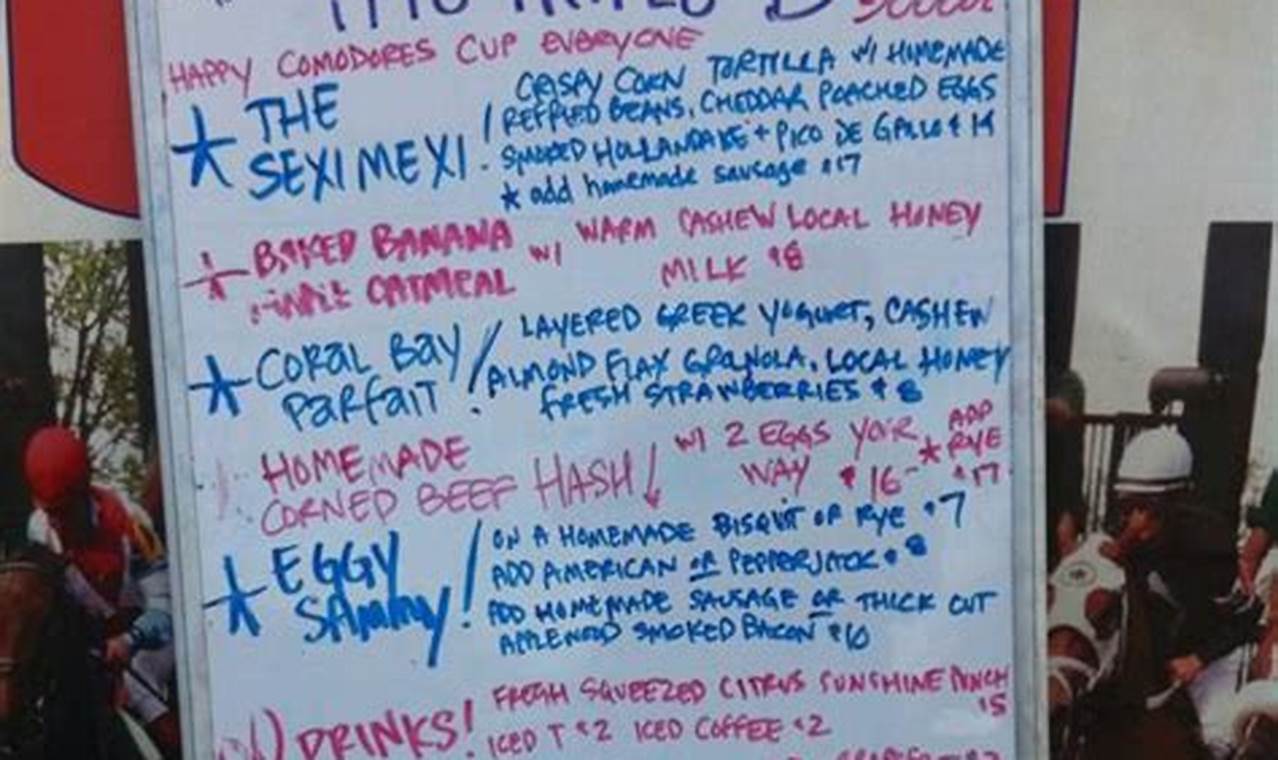 HAPPY COMODORES CUP EVERYONE
* THE SEXI MEXI!
CRISPY CORN TORTILLA W/ HOMEMADE
REFRIED BEANS, CHEDDAR POACHED EGGS
SMOKED HOLLANDAISE + PICO DE GALLO $ 14
* add homemade sausage $17
* BAKED BANANA
OATMEAL
W/ WARM CASHEW LOCAL HONEY
MILK $8
* CORAL BAY
PARFAIT!
LAYERED GREEK YOGURT, CASHEW
ALMOND FLAX GRANOLA, LOCAL HONEY
FRESH STRAWBERRIES $8
HOMEMADE
CORNED BEEF HASH
W/ 2 EGGS YOUR
WAY $16-
* ADD
RYE
$17
* EGGY
SAMMY!
ON A HOMEMADE BISQUIT OR RYE $7
ADD AMERICAN OR PEPPERJACK $8
ADD HOMEMADE SAUSAGE OR THICK CUT
APPLEWOOD SMOKED BACON $10
DRINKS!
FRESH SQUEEZED CITRUS SUNSHINE PUNCH
$5
ICED T $2 ICED COFFEE $2